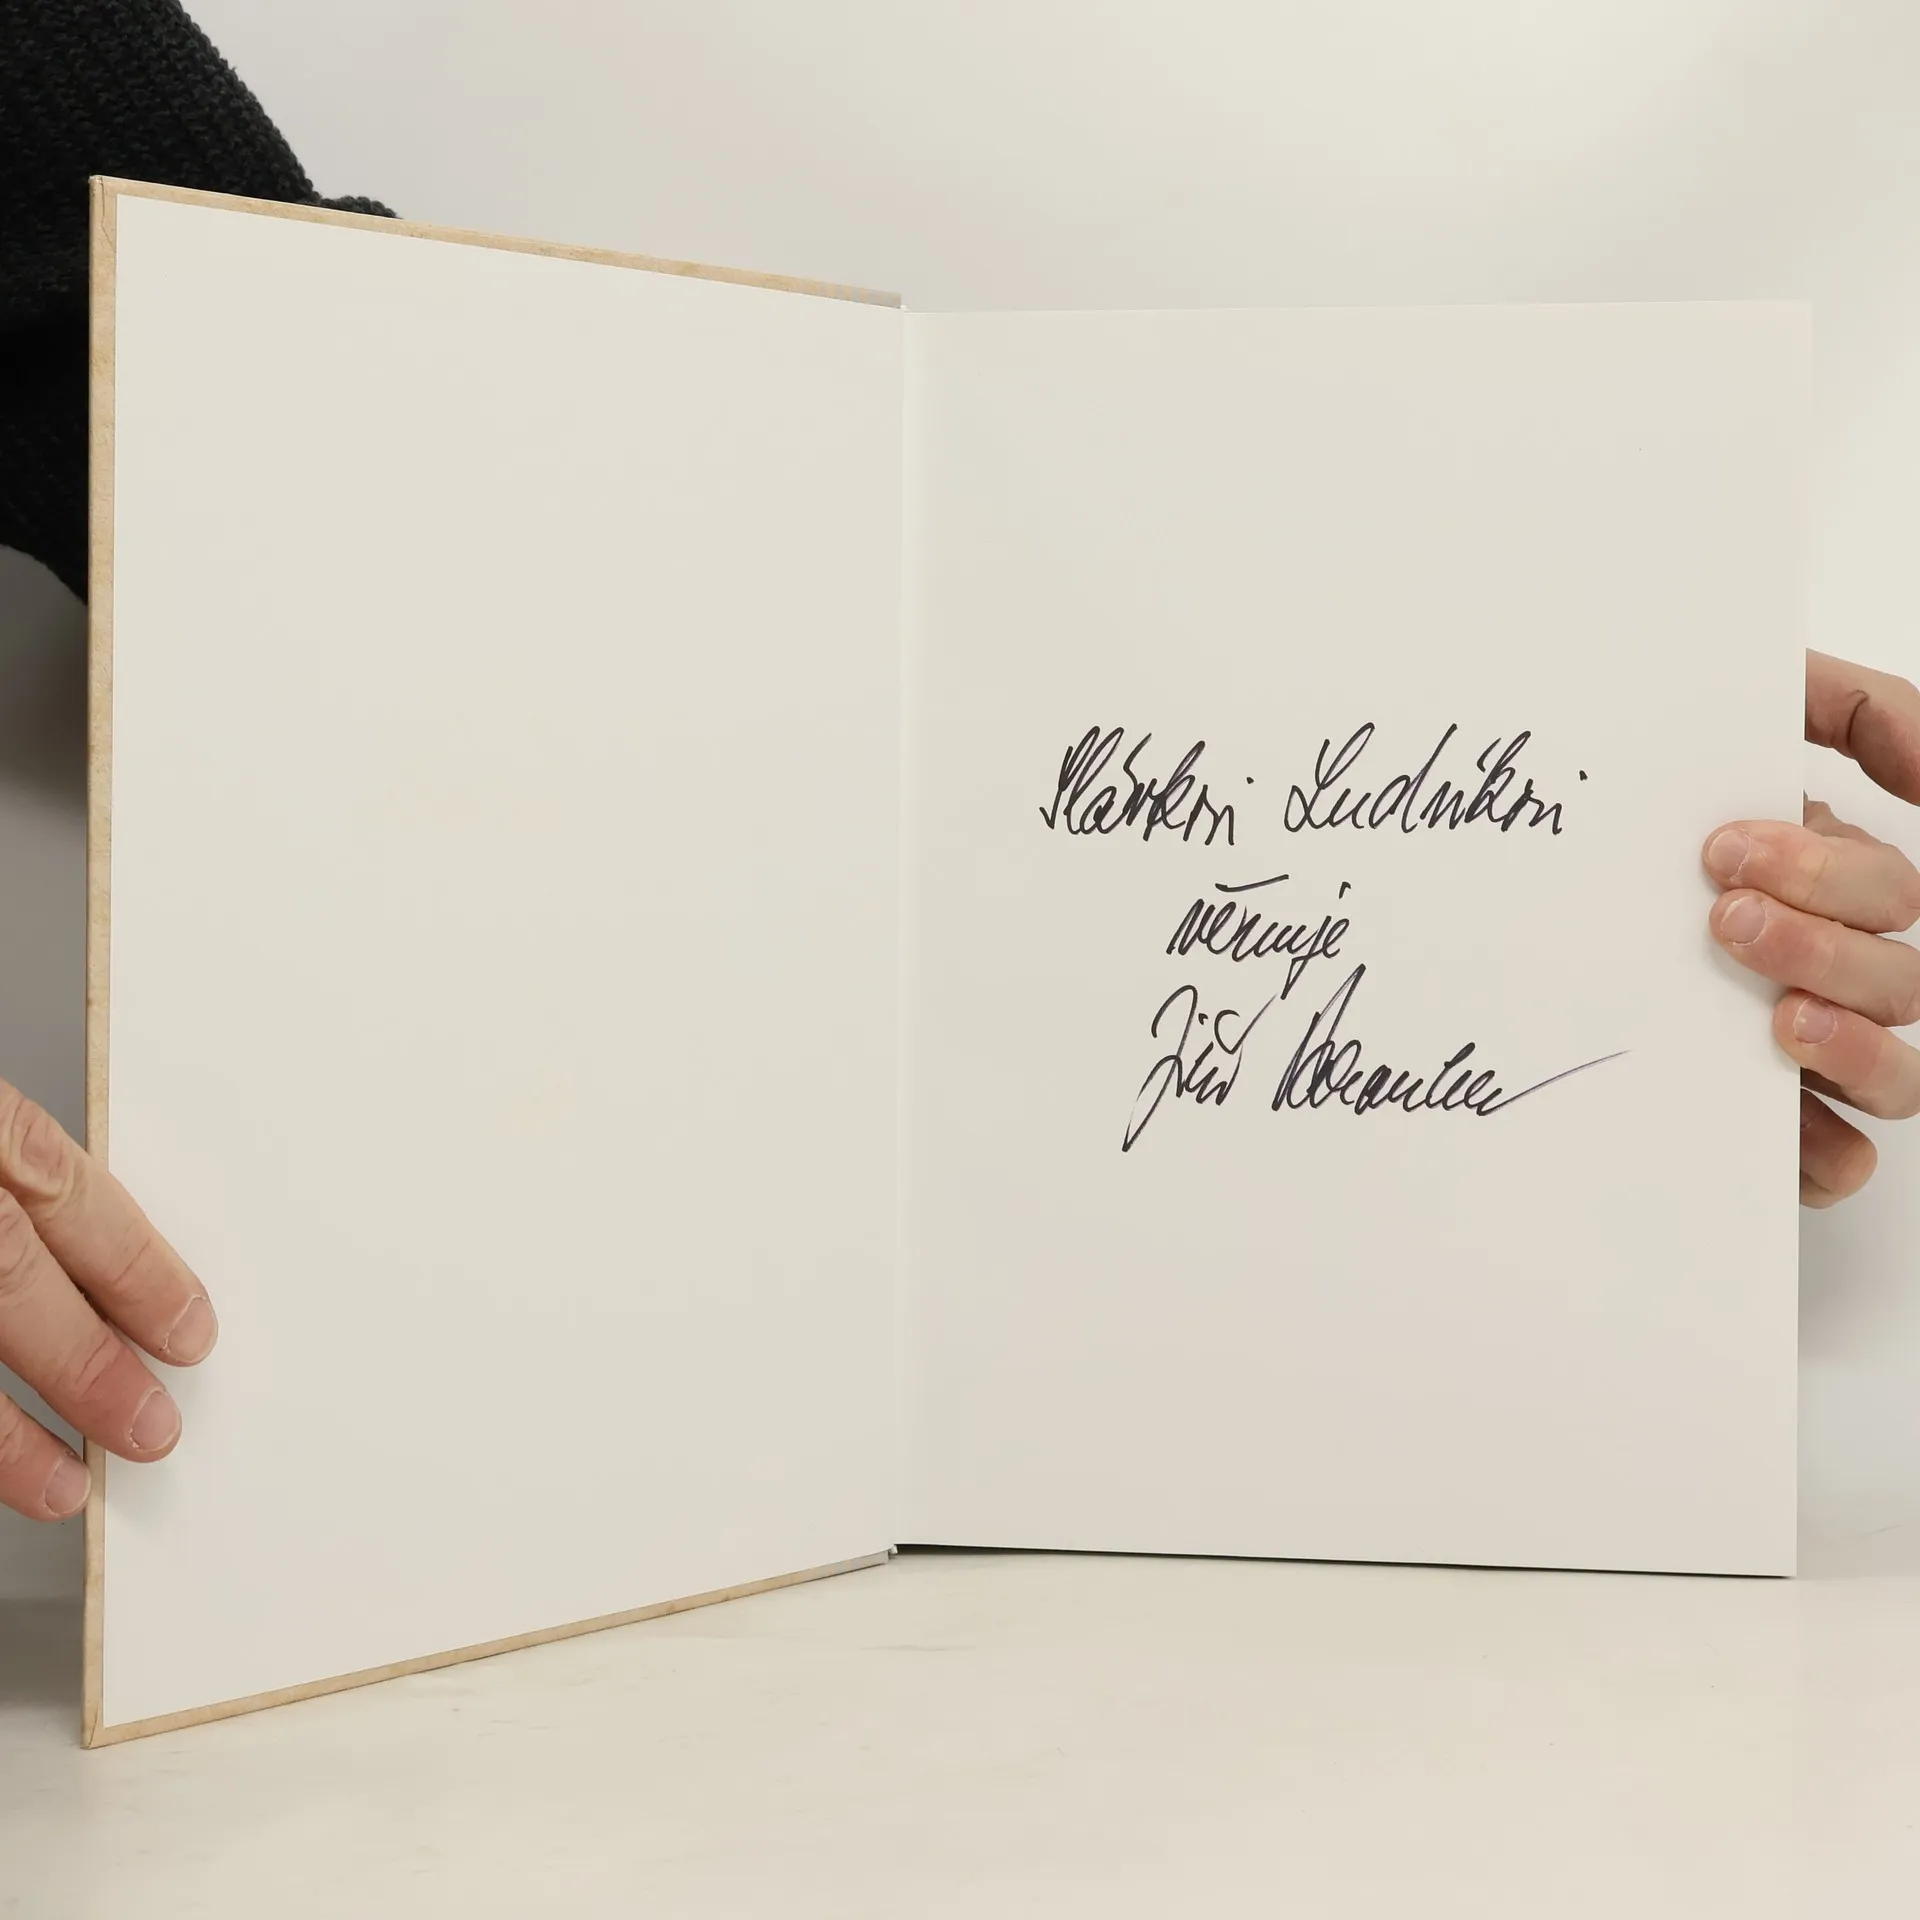 Slávkovi Ludvíkovi
věnuje
Jiří